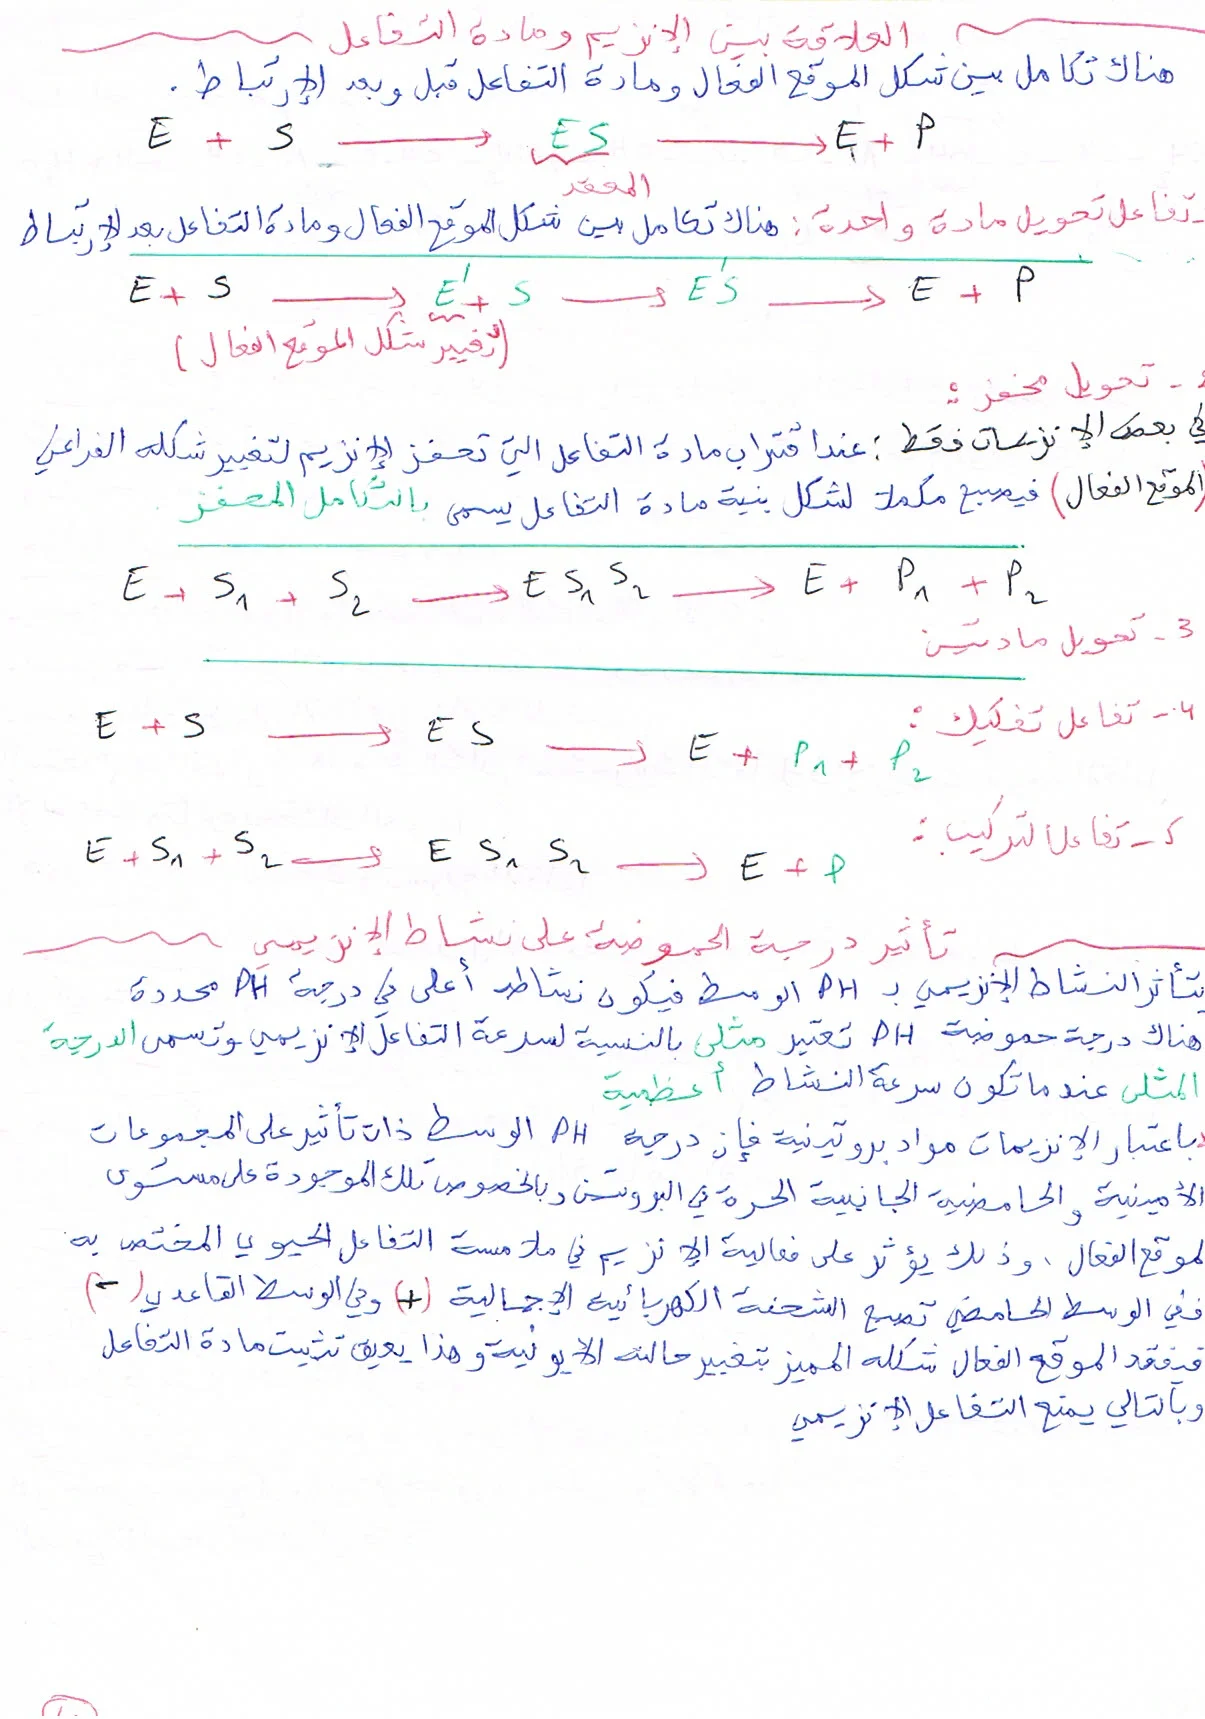 العلاقة بين الإنزيم ومادة التفاعل
هناك تكامل بين شكل الموقع الفعال ومادة التفاعل قبل وبعد الإرتباط .
E + S → ES → E + P
المعقد
- تفاعل تحويل مادة واحدة : هناك تكامل بين شكل الموقع الفعال ومادة التفاعل بعد الإرتباط
E + S → E' + S → E'S → E + P
(تغيير شكل الموقع الفعال)
2 - تحويل محفز :
في بعض الإنزيمات فقط : عند اقتراب مادة التفاعل التي تحفز الإنزيم لتغيير شكله الفراغي
(الموقع الفعال) فيصبح مكملا لشكل بنية مادة التفاعل يسمى بالتكامل المحفز .
E + S1 + S2 → E S1 S2 → E + P1 + P2
3 - تحويل مادتين
4 - تفاعل تفكيك :
E + S → ES → E + P1 + P2
5 - تفاعل التركيب :
E + S1 + S2 → E S1 S2 → E + P
تأثير درجة الحموضة على نشاط الإنزيمي
يتأثر النشاط الإنزيمي بـ PH الوسط فيكون نشاطه أعلى في درجة PH محددة
هناك درجة حموضة PH تعتبر مثلى بالنسبة لسرعة التفاعل الإنزيمي وتسمى الدرجة
المثلى عندما تكون سرعة النشاط أعظمية
باعتبار الإنزيمات مواد بروتينية فإن درجة PH الوسط ذات تأثير على المجموعات
الأمينية والحامضية الجانبية الحرة في البروتين وبالخصوص تلك الموجودة على مستوى
لموقع الفعال . وذلك يؤثر على فعالية الإنزيم في ملامسة التفاعل الحيوي المختص به
ففي الوسط الحامضي تصبح الشحنة الكهربائية الإجمالية (+) وفي الوسط القاعدي (-)
فيفقد الموقع الفعال شكله المميز بتغيير حالته الأيونية وهذا يعيق تثبيت مادة التفاعل
وبالتالي يمنع التفاعل الإنزيمي